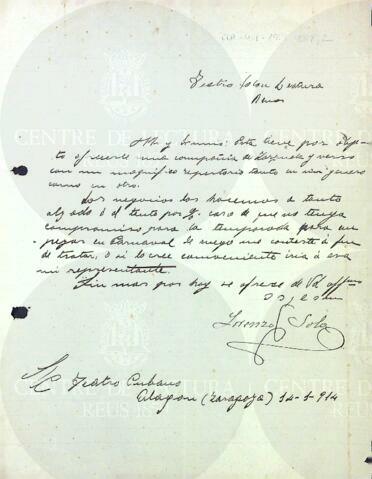 Teatro Salon Lectura
Reus
Muy Sr mio: Esta tiene por obje-
to ofrecerle una compañia de Zarzuela y verso
con un magnifico repertorio tanto en un género
como en otro.
Los negocios los hacemos a tanto
alzado ó al tanto por %. caso de que no tenga
compromiso para la temporada para em-
pezar en Carnaval le ruego me conteste á fin
de tratar, ó si lo cree conveniente iria á esa
mi representante.
Sin mas por hoy se ofrece de Vd
Lorenzo Sola
S/C Teatro Cubano
Alagon (Zaragoza) 14-1-914
CENTRE DE LECTURA
REUS